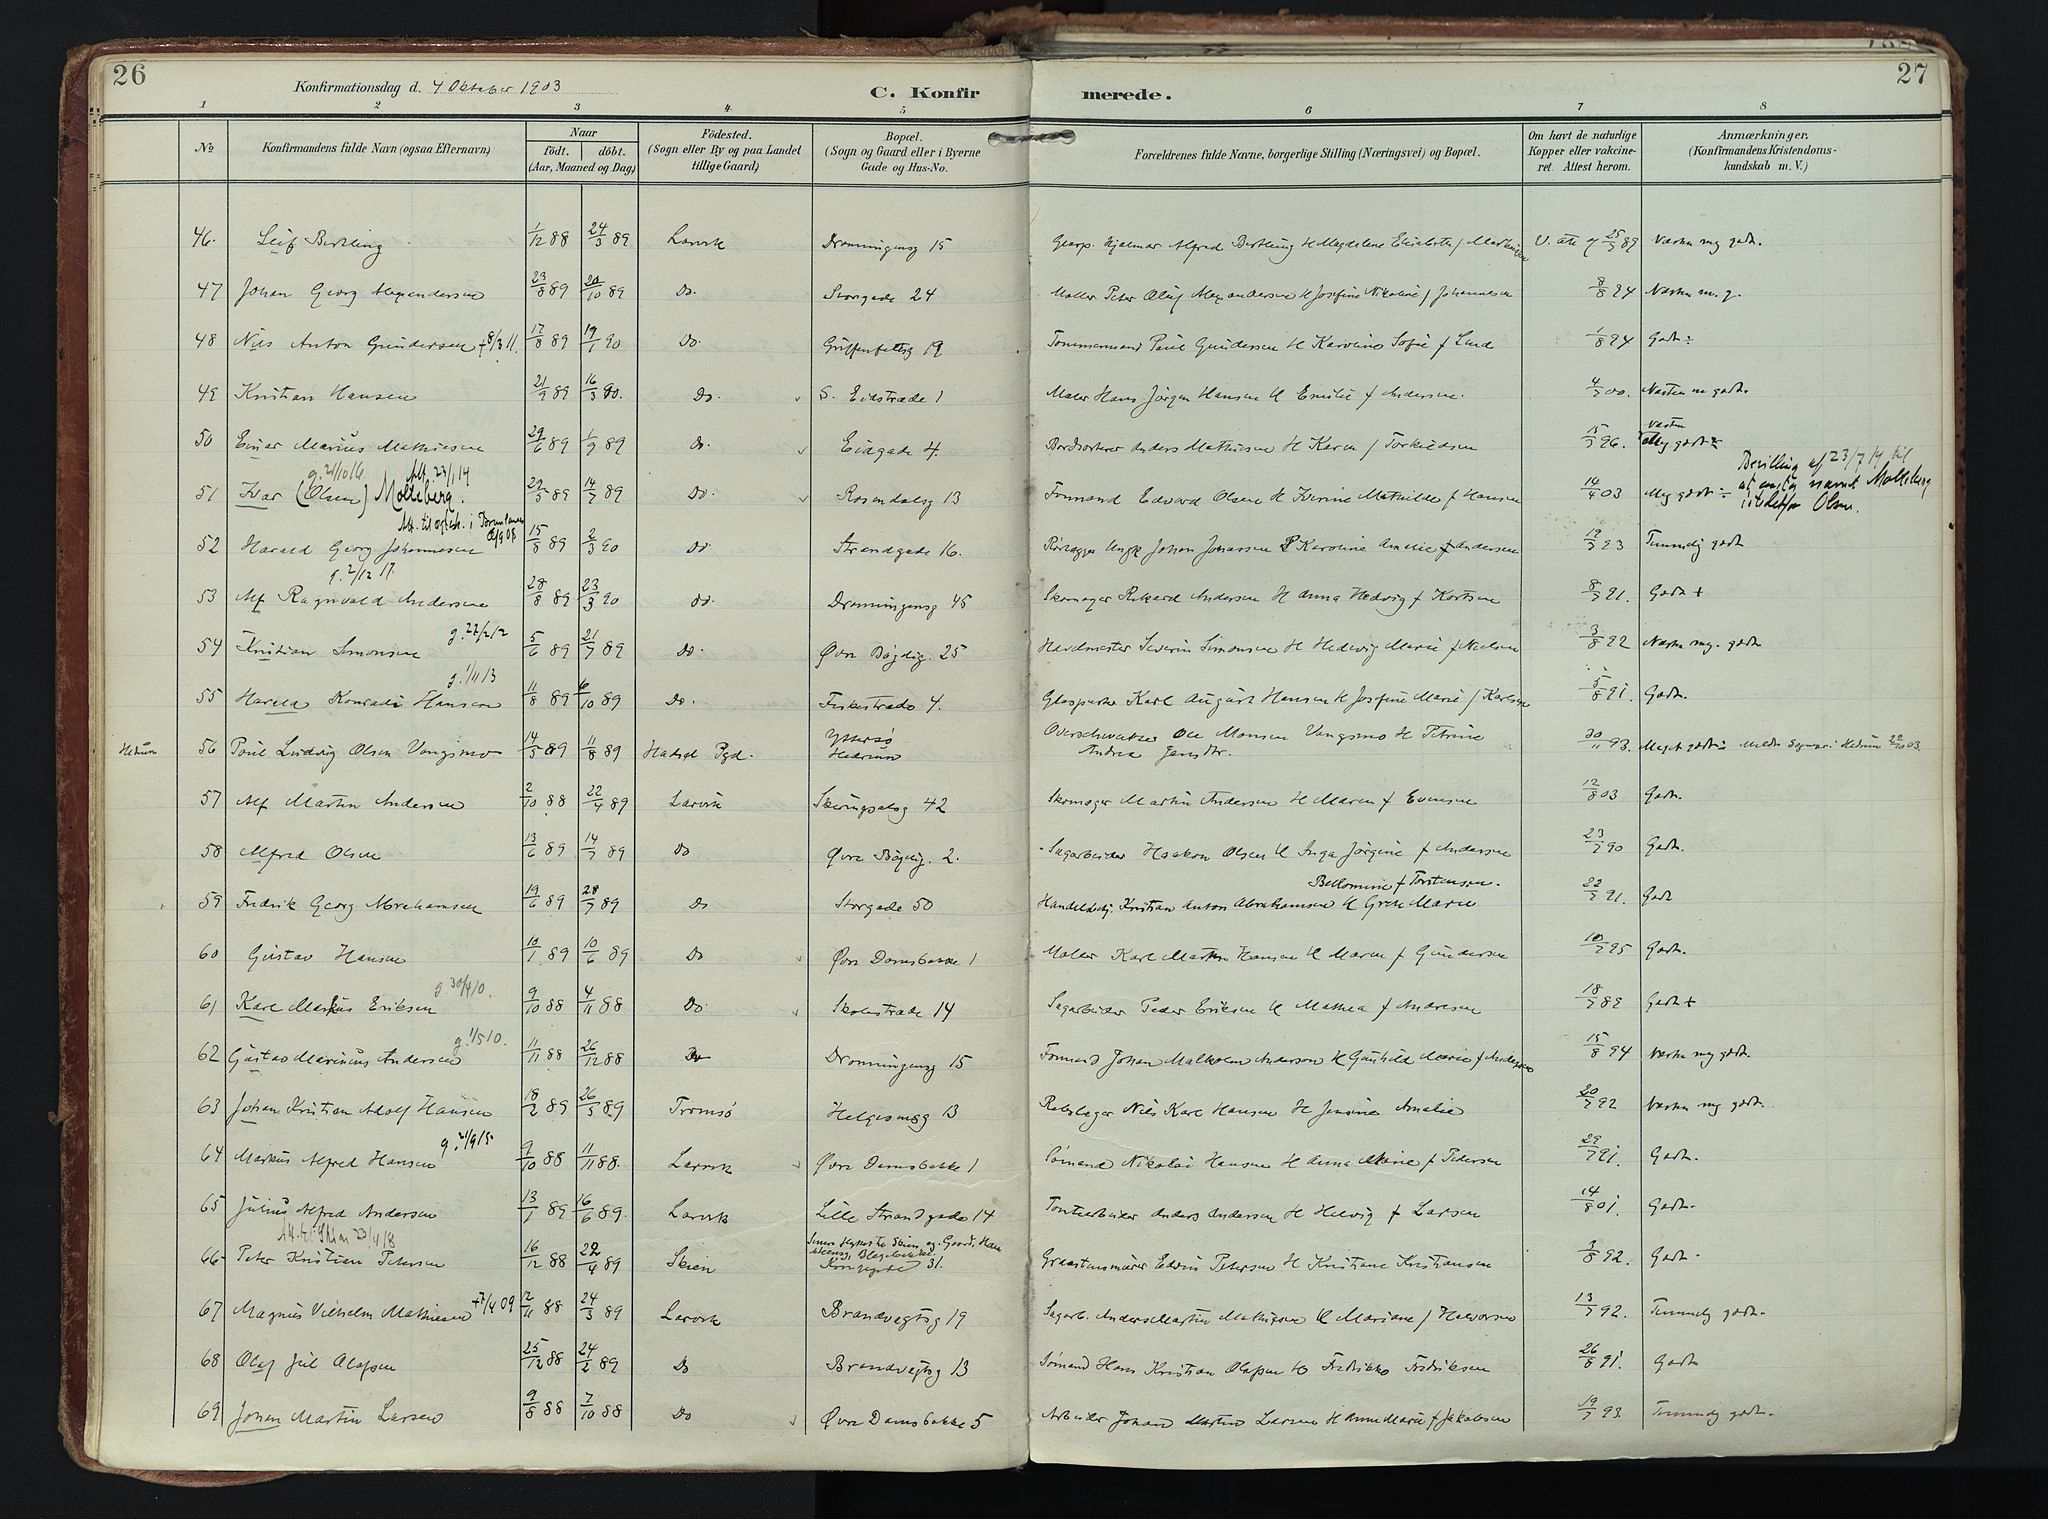 26
Konfirmationsdag d. 4 Oktober 1903
C. Konfir
merede.
27
1 2 3 4 5 6 7 8
No
Konfirmandens fulde Navn (ogsaa Efternavn)
Naar
födt. döbt.
(Aar, Maaned og Dag)
Födested.
(Sogn eller By og paa Landet
tillige Gaard)
Bopæl.
(Sogn og Gaard eller i Byerne
Gade og Hus-No.
Forældrenes fulde Navne, borgerlige Stilling (Næringsvei) og Bopæl.
Om havt de naturlige
Kopper eller vakcine-
ret. Attest herom.
Anmærkninger.
(Konfirmandens Kristendoms-
kundskab m. V.)
46. Leif Bertling 1/12 88 24/3 89 Larvik Dronningensg 15 Glasp. Hjalmar Alfred Bertling H Magdalene Elisabeth f V. att af 25/7 89 Næsten mg godt.
47 Johan Georg Alexandersen 23/8 89 20/10 89 Do. Storgade 24 Møller Peter Oluf Alexandersen H Josefine Nikoline f Johannesen 8/8 94 Næsten m. g.
48 Nils Anton Gundersen + 8/3 11. 17/8 89 19/1 90 Do. Griffenfeltsg 19 Tømmermand Paul Gundersen H Karoline Sofie f Lund 1/8 94 Godt÷
49 Kristian Hansen 21/9 89 16/3 90. Do. S. Eikstræde 1 Maler Hans Jörgen Hansen H Emilie f Andersen. 4/7 00. Næsten m godt.
50 Einar Marius Mathiesen 29/6 89 1/9 89 Do. Eidgade 4. Bordsorterer Anders Mathiesen H Karen f Torkildsen 15/7 96. Næsten Meg godt÷
g. 21/10 16. Att. 23/1 14
51 Ivar (Olsen) Molteberg. 29/5 89 14/7 89 Do. Rosendalsg 13 Formand Edvard Olsen H Iverine Mathilde f Hansen 14/4 03 Meg godt÷ Bevilling af 23/7 14 til
at antage navnet Molteberg
istedetfor Olsen.
Att. til ægtesk. i Brunlanes
52 Harald Georg Johannesen 15/8 89 2/3 90 Do Strandgade 16. Rørlægger Ungk Johan Johansen P Karoline Amalie f Andersen 19/7 93 Temmelig godt
g. 2/12 17.
53 Alf Ragnvald Andersen 28/8 89 23/3 90 Do. Dronningensg 45 Skomager Rikard Andersen H Anna Hedvig f Kortsen 8/7 91. Godt +
54 Kristian Simonsen g. 22/2 12 5/6 89 21/7 89 Do. Øvre Bøgelig. 25 Havnemester Severin Simonsen H Hedevig Marie f Nielsen 3/8 92 Næsten meg. godt
55 Harald Konradi Hansen g. 1/11 13 11/8 89 6/10 89 Do. Fiskestræde 4. Glaspuster Karl August Hansen H Josefine Marie f Karlsen 5/8 91. Godt.
Hedrum 56 Paul Ludvig Olsen Vangsmo 14/5 89 11/8 89 Hadsel Pgd. Yttersø
Hedrum Ole Monsen Vangsmo H Petrine
Andrea Jensdtr. 30/11 93. Meget godt÷ Medd. Sognepr. i Hedrum 22/10 03.
57 Alf Martin Andersen 2/10 88 22/4 89 Larvik Skiringsalsg 42 Skomager Martin Andersen H Maren f Evensen 12/8 03 Godt.
58 Alfred Olsen 13/6 89 14/7 89 Do Øvre Bøgelig. 2. Sagarbeider Haakon Olsen H Inga Jørgine f Andersen 23/7 90 Godt.
59 Fredrik Georg Abrahamsen 19/6 89 28/7 89 Do Storgade 50 Handelsbetj. Kristian Anton Abrahamsen H Grete Marie
Bellomine f Torstensen. 22/7 91. Godt
60 Gustav Hansen 10/1 89 10/6 89 Do Øvre Damsbakke 1 Maler Karl Martin Hansen H Maren f Gundersen 10/7 95 Godt.
61 Karl Markus Eriksen g. 30/4 10. 9/10 88 4/11 88 Do. Skolestræde 14 Sagarbeider Peder Eriksen H Mathea f Andresen 18/7 89 Godt +
62 Gustav Marinius Andersen g. 1/5 10. 11/11 88 26/12 88 Do Dronningensg 15 Formand Johan Malkolm Anderson H Gunhild Marie f Andersen 15/8 94 Næsten meg godt.
63 Johan Kristian Adolf Hansen 18/2 89 26/5 89 Tromsö Helgesensg 13 Rebslager Nils Karl Hansen H Jensine Amalie 20/7 92 Næsten meg godt.
64 Markus Alfred Hansen g. 21/9 15 9/10 88 11/11 88. Larvik Øvre Damsbakke 1 Sømand Nikolai Hansen H Anna Marie f Pedersen 29/7 91. Godt.
65 Julius Alfred Andersen 13/1 89 16/6 89. Larvik Lille Strandgade 14 Tomtearbeider Anders Andersen H Helvig f Larsen 14/8 01. Godt.
Att. til Skien 23/4 18
66 Peter Kristian Petersen 16/12 88 22/4 89 Skien Kongegade 31. Graastensmurer Edvin Petersen H Kristiane Kristiansen 3/8 92. Godt.
67 Magnus Vilhelm Mathiesen + 7/4 09 12/11 88 24/3 89 Larvik Brandvagtsg 19 Sagarb. Anders Martin Mathiesen H Mariane f Halvorsen 13/7 92. Temmelig godt.
68 Olaf Jul Olafsen 25/12 88 24/2 89 Do Brandvagtsg 13 Sømand Hans Kristian Olafsen H Fredrikke Fredriksen 26/8 91. Godt
69 Johan Martin Larsen 9/8 88 7/10 88 Do Øvre Damsbakke 5 Arbeider Johan Martin Larsen H Anne Marie f Jakobsen 19/7 93. Temmelig godt.